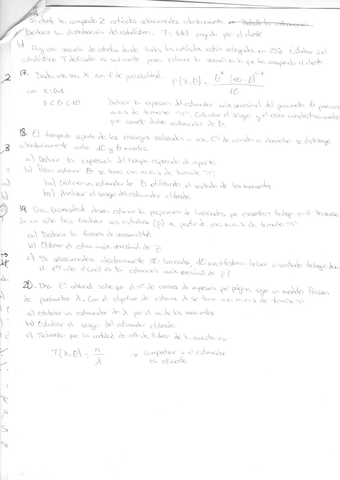 ha comprado 2 artículos seleccionados aleatoriamente
Deducir la distribución del estadístico. T = total pagado por el cliente
b) Hay una sección de ofertas donde todos los artículos están rebajados en 25%.
17. Dada una v.a. X con f. de probabilidad: P(X,θ) = θ^x (40-θ)^1-x / 40
con X: 0,1
0 ≤ θ ≤ 40 Deducir la expresión del estimador máx verosímil del parámetro θ para una
m.a.s de tamaño "n". Calcular el sesgo y el error cuadrático medio
que comete dicho estimador de θ.
18. El tiempo de reparto de los encargos realizados a una Eª de envíos a domicilio se distribuye
aleatoriamente entre 10 y θ minutos.
a) Deducir la expresión del tiempo esperado de reparto
b) Para estimar θ se toma una m.a.s de tamaño "n":
b1) Obtener un estimador de θ utilizando el método de los momentos
b2) Analizar el sesgo del estimador obtenido.
19. Una Universidad desea estimar la proporción de licenciados que encuentra trabajo en el transcurso
de un año tras finalizar sus estudios (p) a partir de una m.a.s de tamaño "n".
a) Deducir la función de verosimilitud
b) Obtener el estim. máx verosímil de p
c) Si seleccionados aleatoriamente 30 licenciados, 10 manifestaron haber encontrado trabajo
el 1er año ¿Cuál es la estimación máx verosímil de p?
20. Una E. editorial sabe que el nº de errores de impresión por página sigue un modelo Poisson
de parámetro λ. Con el objetivo de estimar λ se toma una m.a.s de tamaño "n".
a) Obtener un estimador de λ por el m. de los momentos
b) Estudiar el sesgo del estimador obtenido
c) Sabiendo que la cantidad de info. de Fisher de la muestra es:
I(X,λ) = n/λ → Comprobar si el estimador
es eficiente